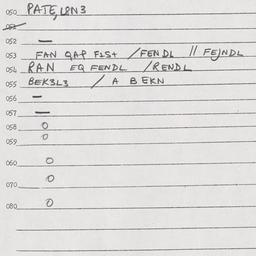 050 PATE, LON3
051
052 —
053 FAN QAP F1St / FENDL // FEJNDL
054 RAN EQ FENDL / RENDL
055 BEK3L3 / A B EKN
056 —
057 —
058 O
059 O
060 O
070 O
080 O